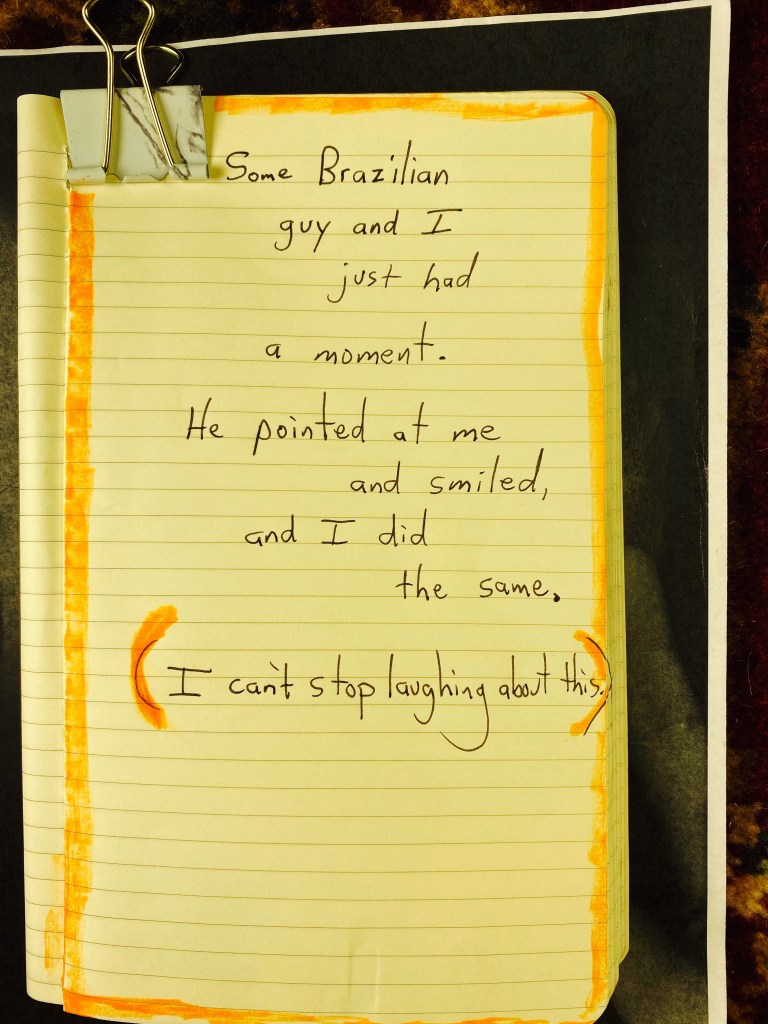 Some Brazilian
guy and I
just had
a moment.
He pointed at me
and smiled,
and I did
the same.
(I can't stop laughing about this.)